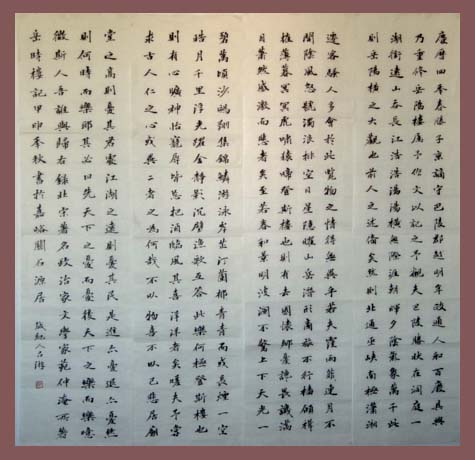 慶曆四年春滕子京謫守巴陵郡越明年政通人和百廢具興
乃重修岳陽樓屬予作文以記之予觀夫巴陵勝狀在洞庭一
湖銜遠山吞長江浩浩湯湯橫無際涯朝暉夕陰氣象萬千此
則岳陽樓之大觀也前人之述備矣然則北通巫峽南極瀟湘
遷客騷人多會於此覽物之情得無異乎若夫霪雨霏霏連月不
開陰風怒號濁浪排空日星隱曜山岳潛形商旅不行檣傾楫
摧薄暮冥冥虎嘯猿啼登斯樓也則有去國懷鄉憂讒畏譏滿
目蕭然感激而悲者矣至若春和景明波瀾不驚上下天光一
碧萬頃沙鷗翔集錦鱗游泳岸芷汀蘭郁郁青青而或長煙一空
皓月千里浮光耀金靜影沉璧漁歌互答此樂何極登斯樓也
則有心曠神怡寵辱皆忘把酒臨風其喜洋洋者矣嗟夫予嘗
求古人仁之心或異二者之為何哉不以物喜不以己悲居廟
堂之高則憂其君處江湖之遠則憂其民是進亦憂退亦憂然
則何時而樂耶其必曰先天下之憂而憂後天下之樂而樂噫
微斯人吾誰與歸右錄北宋著名政治家文學家范仲淹所著
岳陽樓記甲申年秋書於嘉峪關石源居